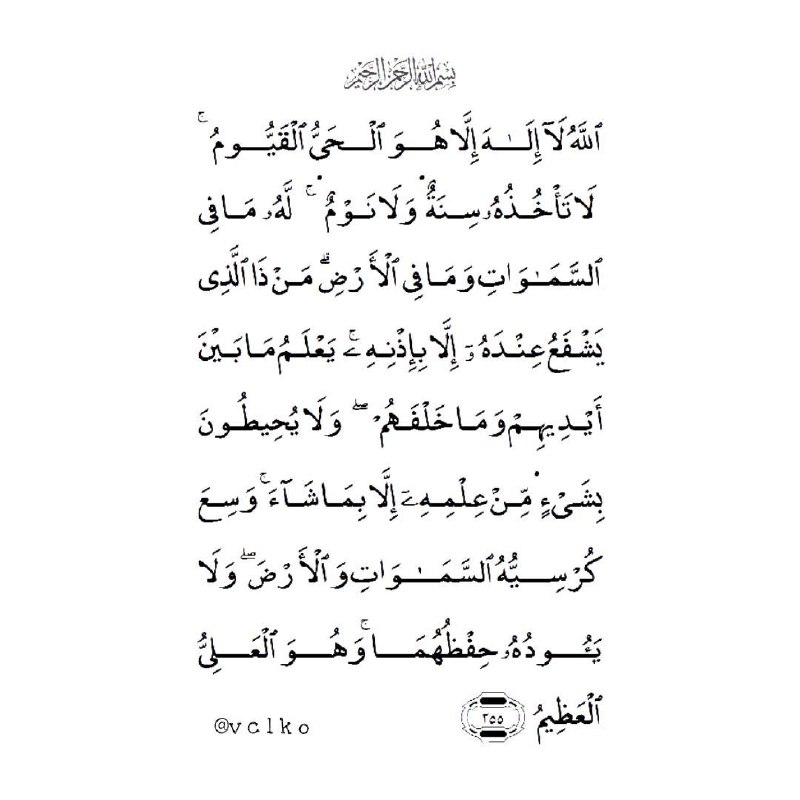 بِسْمِ ٱللَّهِ ٱلرَّحْمَٰنِ ٱلرَّحِيمِ
ٱللَّهُ لَآ إِلَـٰهَ إِلَّا هُـوَ ٱلْـحَىُّ ٱلْقَيُّـومُ ۚ
لَا تَأْخُـذُهُۥ سِـنَةٌ وَلَا نَـوْمٌ ۚ لَّهُۥ مَـا فِى
ٱلسَّـمَـٰوَاتِ وَمَـا فِى ٱلْأَرْضِ ۗ مَـنْ ذَا ٱلَّذِى
يَشْـفَعُ عِنْـدَهُۥٓ إِلَّا بِـإِذْنِـهِۦ ۚ يَعْلَـمُ مَـا بَـيْنَ
أَيْـدِيهِـمْ وَمَـا خَلْـفَـهُمْ ۖ وَلَا يُـحِيطُـونَ
بِشَـىْءٍ مِّـنْ عِلْمِـهِۦٓ إِلَّا بِمَـا شَـآءَ ۚ وَسِـعَ
كُـرْسِـيُّهُ ٱلسَّـمَـٰوَاتِ وَٱلْأَرْضَ ۖ وَلَا
يَـُٔـودُهُۥ حِفْـظُهُمَـا ۚ وَهُـوَ ٱلْعَـلِـىُّ
ٱلْعَظِيمُ ٢٥٥
@vclko